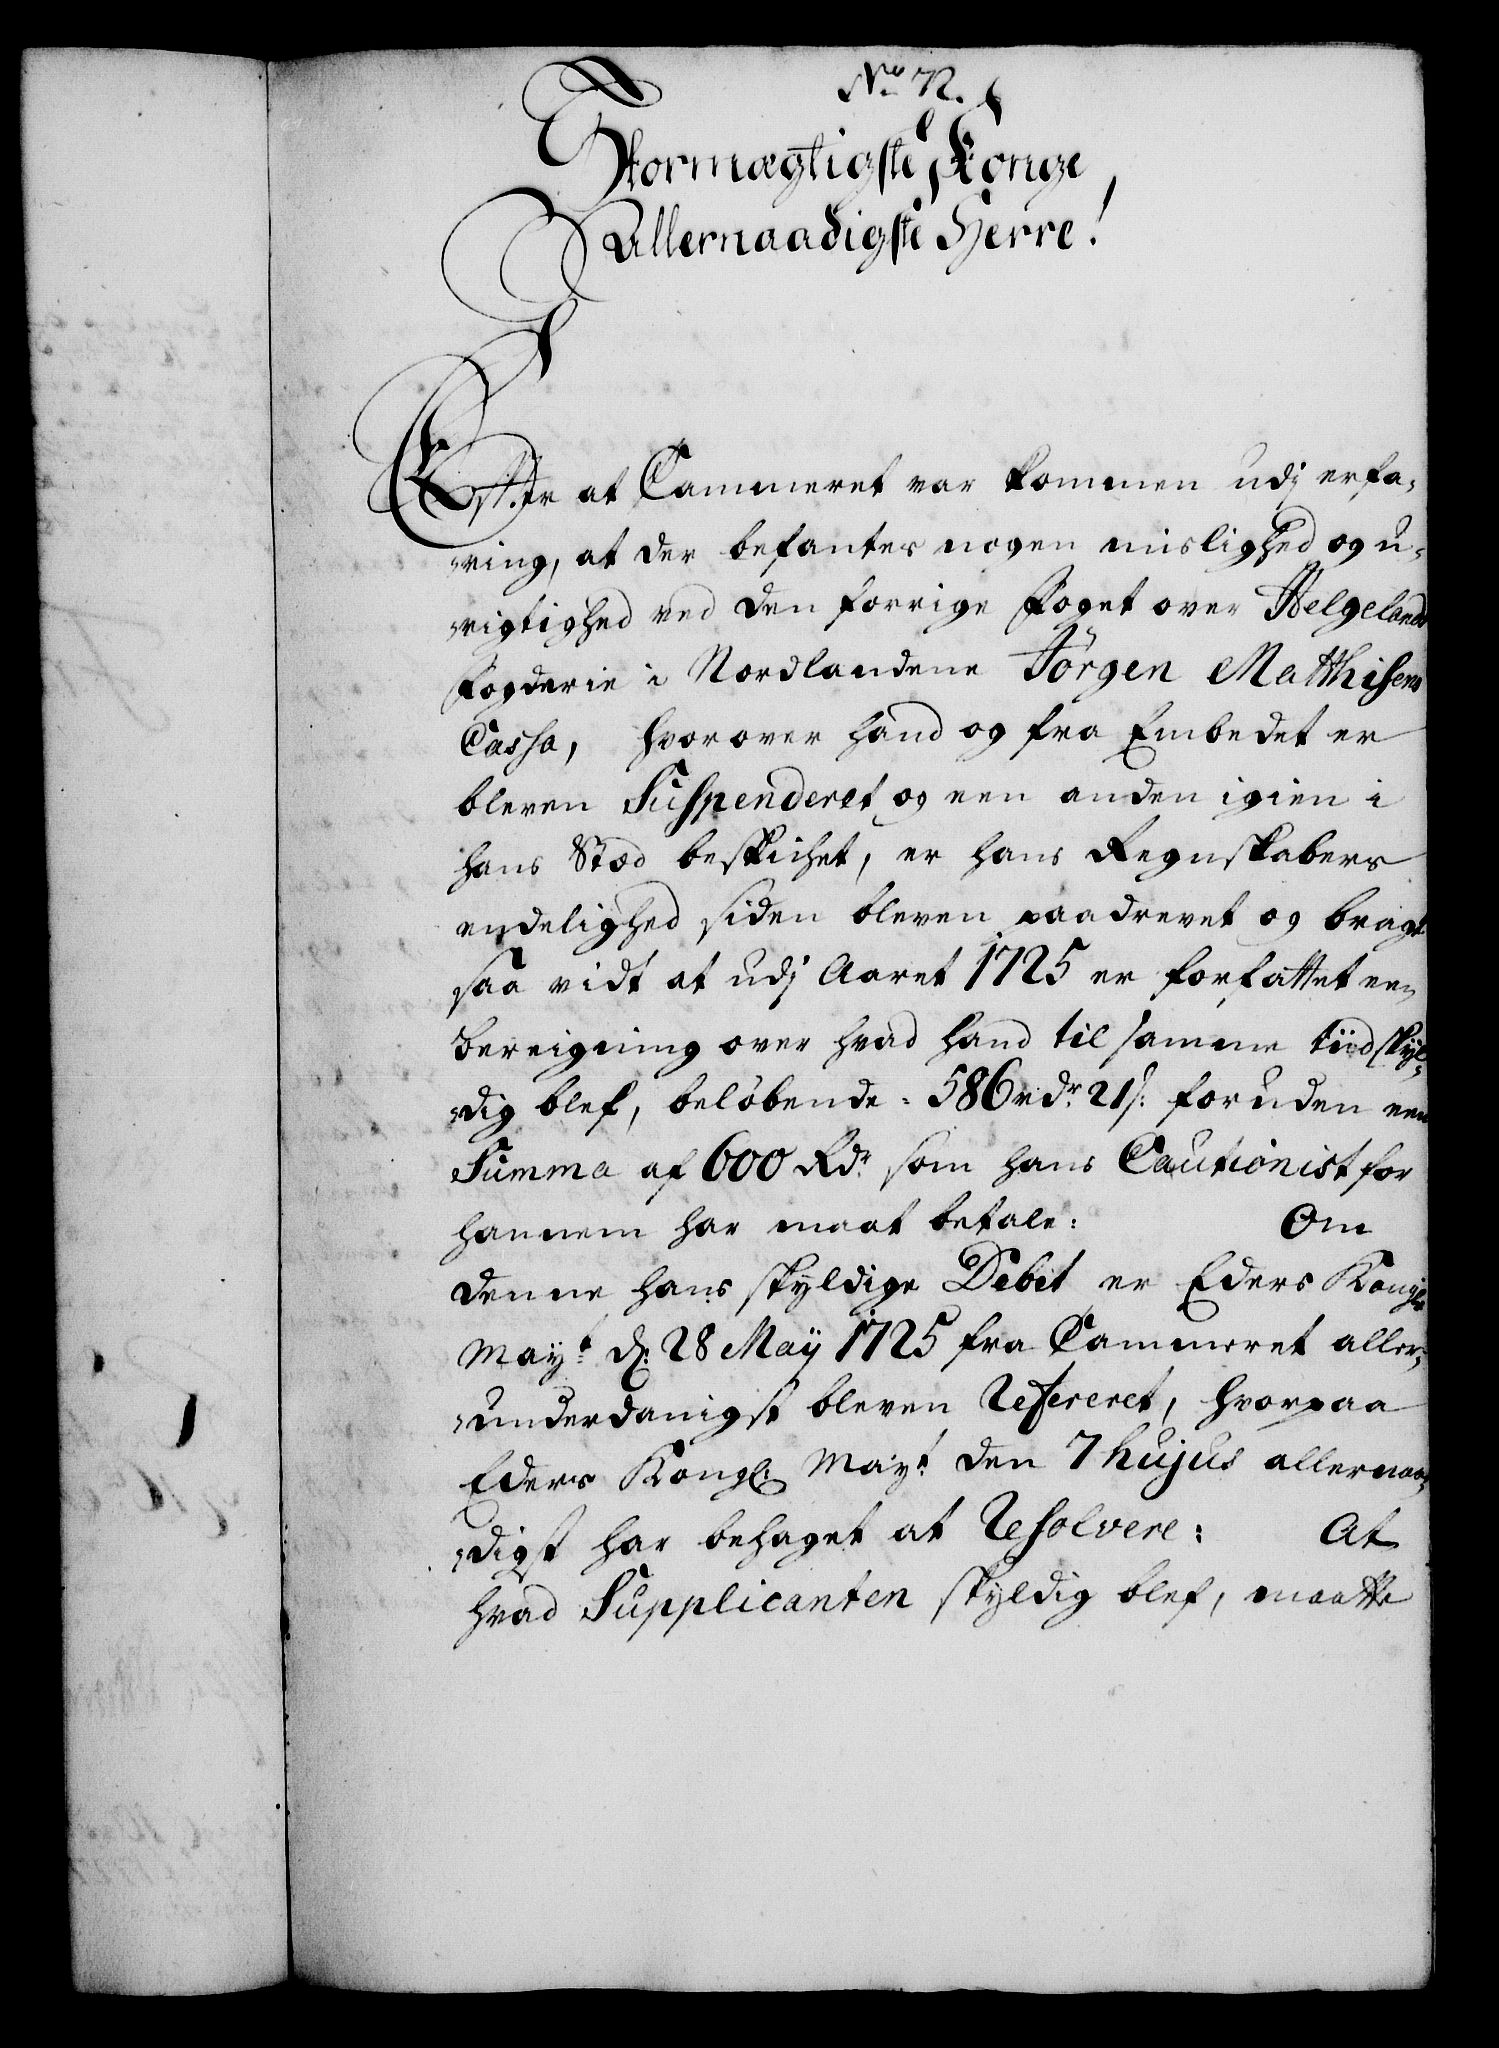 No 72.
Stormægtigste Konge
Allernaadigste Herre!
Efter at Cammeret var kommen udj erfa-
ring, at der befantes nogen mislighed og u-
rigtighed ved den forrige Foget over Helgelands
Fogderie i Nordlandene Jörgen Matthisens
Cassa, hvorover hand og fra Embedet er
bleven Suspenderet og een anden igien i
hans Stæd beskichet, er hans Regnskabers
endelighed siden bleven paadrevet og bragt
saa vidt at udj Aaret 1725 er forfattet een
bereigning over hvad hand til samme tiid skyl-
dig blef, beløbende 586 rdr. 21 s: foruden een
Summa af 600 Rdr. som hans Cautionist for
hannem har maat betale: Om
denne hans skyldige Debet er Eders Kongl.
Mayt. d. 28 Maÿ 1725 fra Cammeret aller-
underdanigst bleven Refereret, hvorpaa
Eders Kongl. Mayt. den 7 hujus allernaa-
digst har behaget at Resolvere: At
hvad Supplicanten skyldig blef, maatte